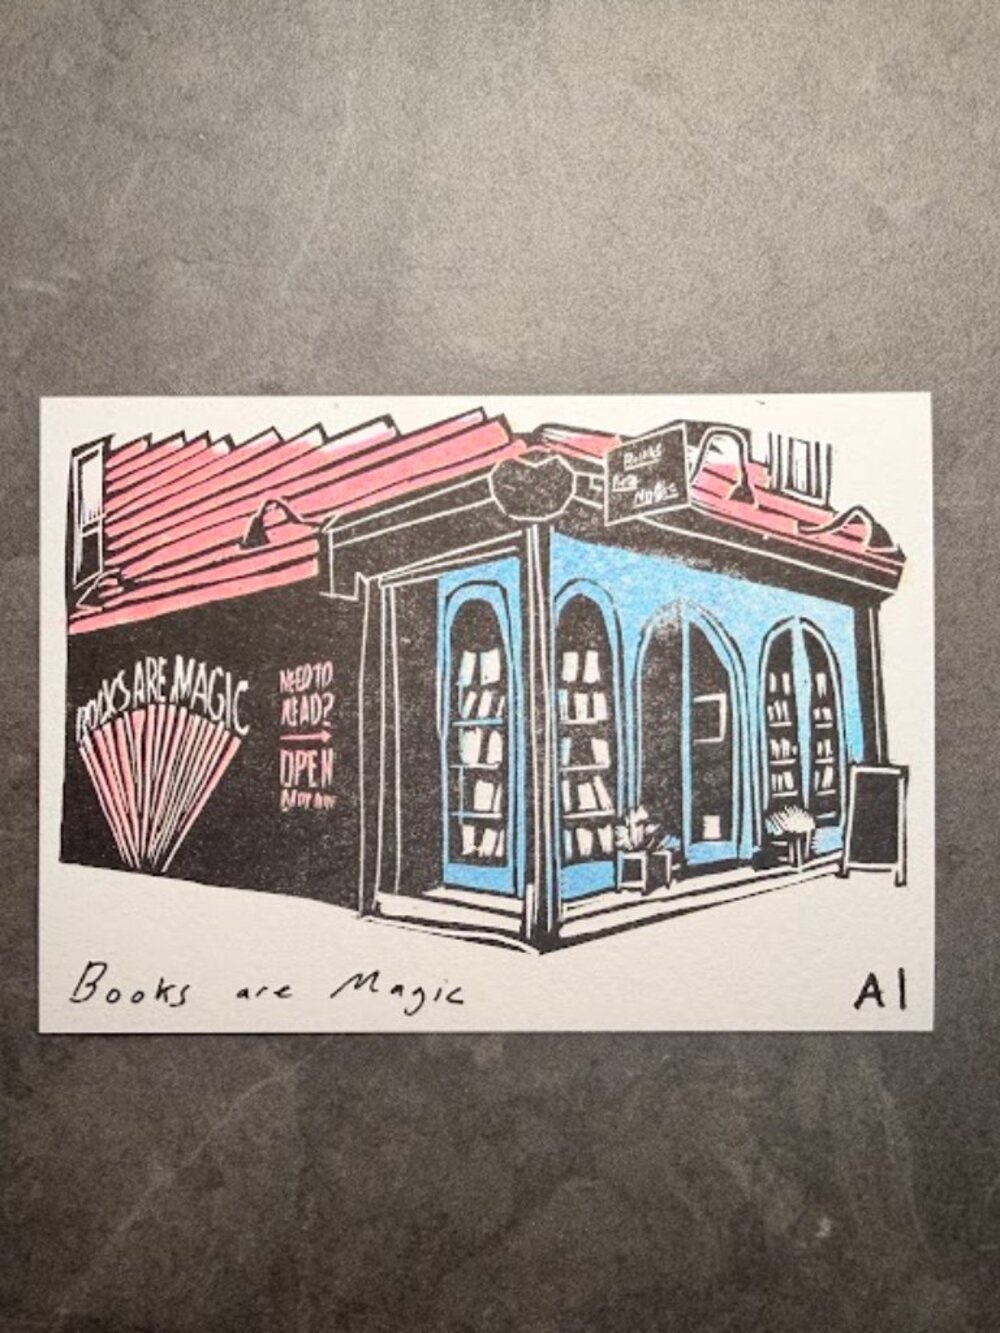 Books
Are
Magic
BOOKS ARE MAGIC
NEED TO
READ?
OPEN
Books are Magic
AI